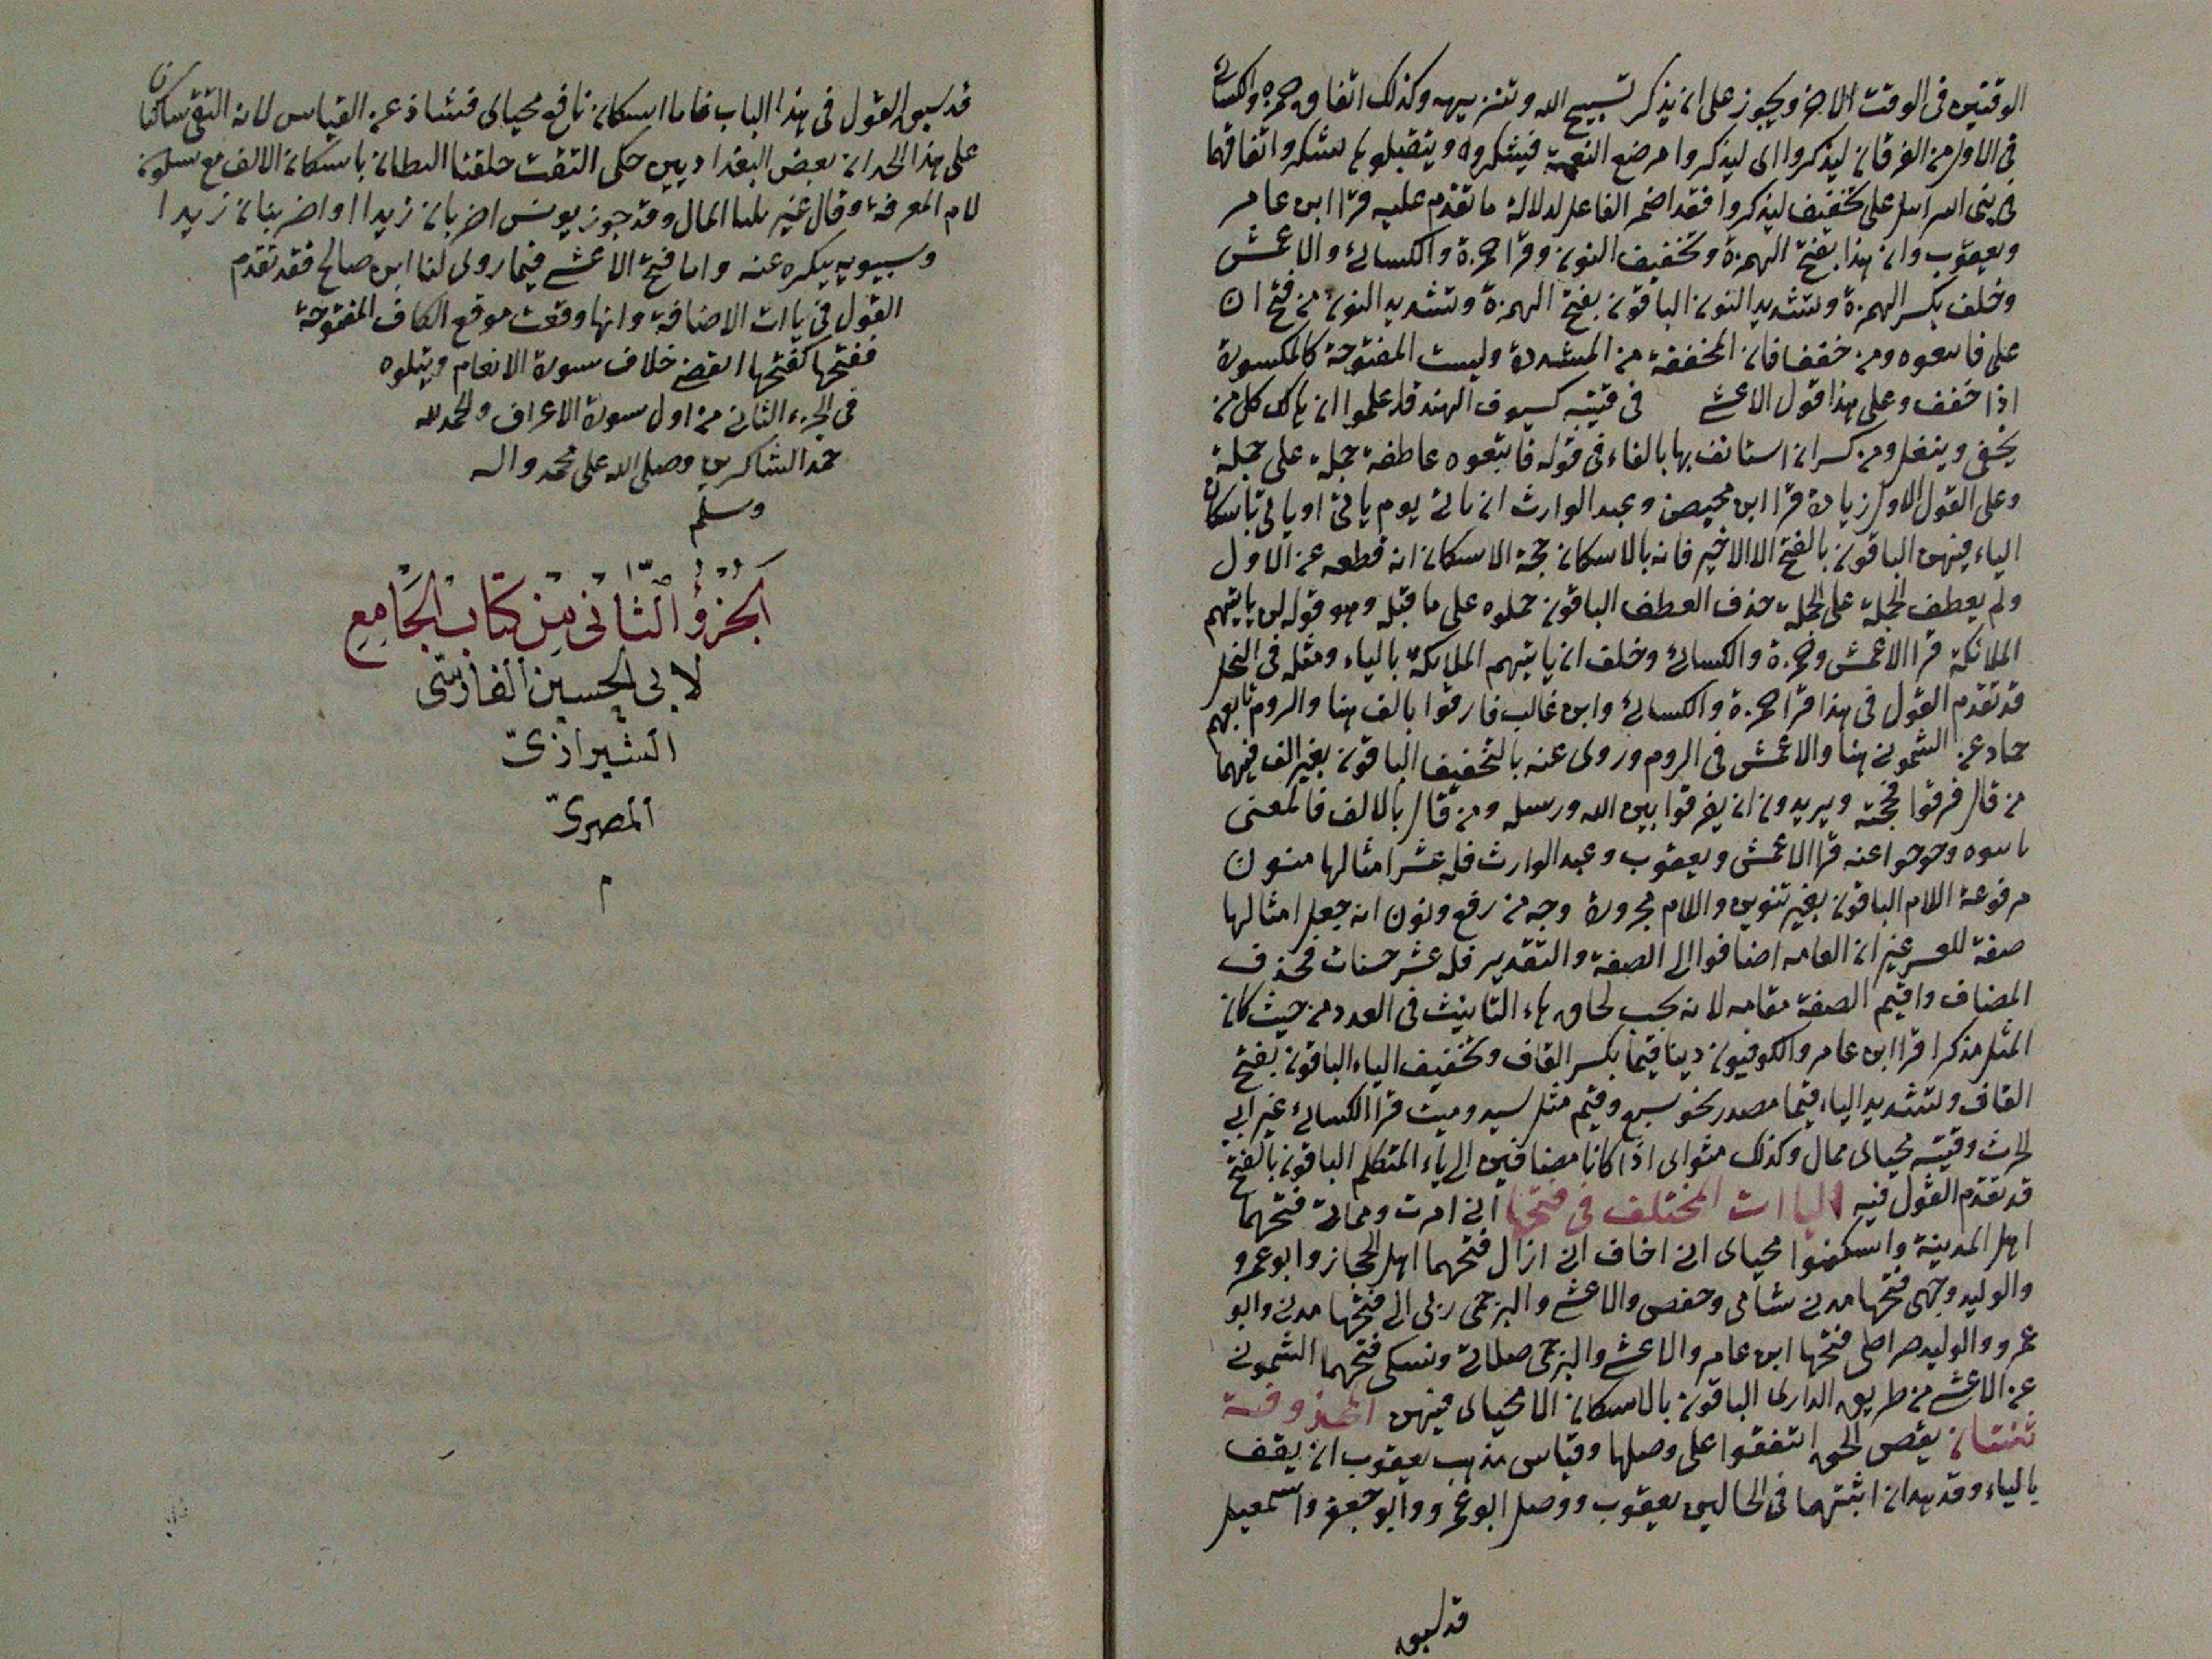 الوقتين فى الوقت الاخر ويجوز على ان يذكر تسبيح الله وتنزيهه وكذلك اتفاق حمزة والكسائى
فى الاول من الفرقان ليذكروا اى ليذكروا مرضع النعمة فيشكروه ويتقبلوها بشكر واتفاقهما
فى بنى اسرايل على تخفيف ليذكروا فقد اضمر الفاعل لدلالة ما تقدم عليه قرا ابن عامر
ويعقوب وان هذا بفتح الهمزة وتخفيف النون وقرا حمزة والكسائى والاعمش
وخلف بكسر الهمزة وتشديد النون الباقون بفتح الهمزة وتشديد النون من فتح ان
على فاتبعوه ومن خففا فان المخففة من المشددة وليست المفتوحة كالمكسورة
اذا خفف وعلى هذا قول الاعشى فى فتية كسيوف الهند قد علموا ان هالك كل من
يحفى وينعل ومن كسر ان استانف بها بالفاء فى قوله فاتبعوه عاطفة جملة على جملة
وعلى القول الاول زيادة قرا ابن محيصن وعبد الوارث ان تاتى يوم ياتى او ياتى باسكان
الياء فيهن الباقون بالفتح الا الاخير فانه بالاسكان حجة الاسكان انه قطعه عن الاول
ولم يعطف الجملة على الجملة حذف العطف الباقون حملوه على ما قبله وهو قوله لن ياتيهم
الملائكة قرا الاعمش وحمزة والكسائى وخلف ان ياتيهم الملايكة بالياء ومثله فى النحل
قد تقدم القول فى هذا قرا حمزة والكسائى وابن غالب فارقوا بالف هنا والروم تابعهم
حماد عن الشمونى هنا والاعمش فى الروم وروى عنه بالتخفيف الباقون بغير الف فيهما
من قال فرقوا فحجته ويريدون ان يفرقوا بين الله ورسله ومن قال بالالف فالمعنى
باينوه وخرجوا عنه قرا الاعمش ويعقوب وعبد الوارث فله عشر امثالها منون
مرفوعة اللام الباقون بغير تنوين واللام مجرورة وجه من رفع ونون انه جعل امثالها
صفة للعشر غير ان العامه اضافوا الى الصفة والتقدير فله عشر حسنات فحذف
المضاف واقيم الصفة مقامه لانه يجب لحاق هاء التانيث فى العدد من حيث كان
المثل مذكرا قرا ابن عامر والكوفيون دينا قيما بكسر القاف وتخفيف الياء الباقون بفتح
القاف وتشديد الياء قيما مصدر نحو شبع وقيم مثل سيد وميت قرا الكسائى غير ابى
الحرث وقتيبه محياى ممال وكذلك مثواى اذا كانا مضافين الى ياء المتكلم الباقون بالفتح
قد تقدم القول فيه الياات المختلف فى فتحها انى امرت ومماتى فتحهما
اهل المدينة واسكنوا محياى انى اخاف انى ازال فتحهما اهل الحجاز وابو عمرو
والوليد وجهى فتحها مدنى شامى وحفص والاعشى والبرجمى ربى الى فتحها مدنى وابو
عمرو والوليد صراطى فتحها ابن عامر والاعشى والبرجمى صلاتى ونسكى فتحهما الشمونى
عن الاعشى من طريق الدارى الباقون بالاسكان الا محياى فيهن المحذوفة
ثنتان يقص الحق اتفقوا على وصلها وقياس مذهب يعقوب ان يقف
بالياء وقد هدان اثبتهما فى الحالين يعقوب ووصل ابو عمرو وابو جعفر واسمعيل
قد سبق
قد سبق القول فى هذا الباب فاما اسكان نافع محياى فشاذ عن القياس لانه التقى ساكنان
على هذا الحد ان بعض البغداديين حكى التقت حلقتا البطان باسكان الالف مع سكون
لام المعرفة وقال غيره ثلثا المال وقد جوز يونس اضربان زيدا واضربنان زيدا
وسيبويه ينكره عنه واما فتح الاعشى فيما روى لنا ابن صالح فقد تقدم
القول فى ياات الاضافة وانها وقعت موقع الكاف المفتوحة
ففتحها كفتحها انقضى خلاف سورة الانعام ويتلوه
فى الجزء الثانى من اول سورة الاعراف والحمد لله
حمد الشاكرين وصلى الله على محمد واله
وسلم
الجزؤ الثانى من كتاب الجامع
لابى الحسين الفارسى
الشيرازى
المصرى
م